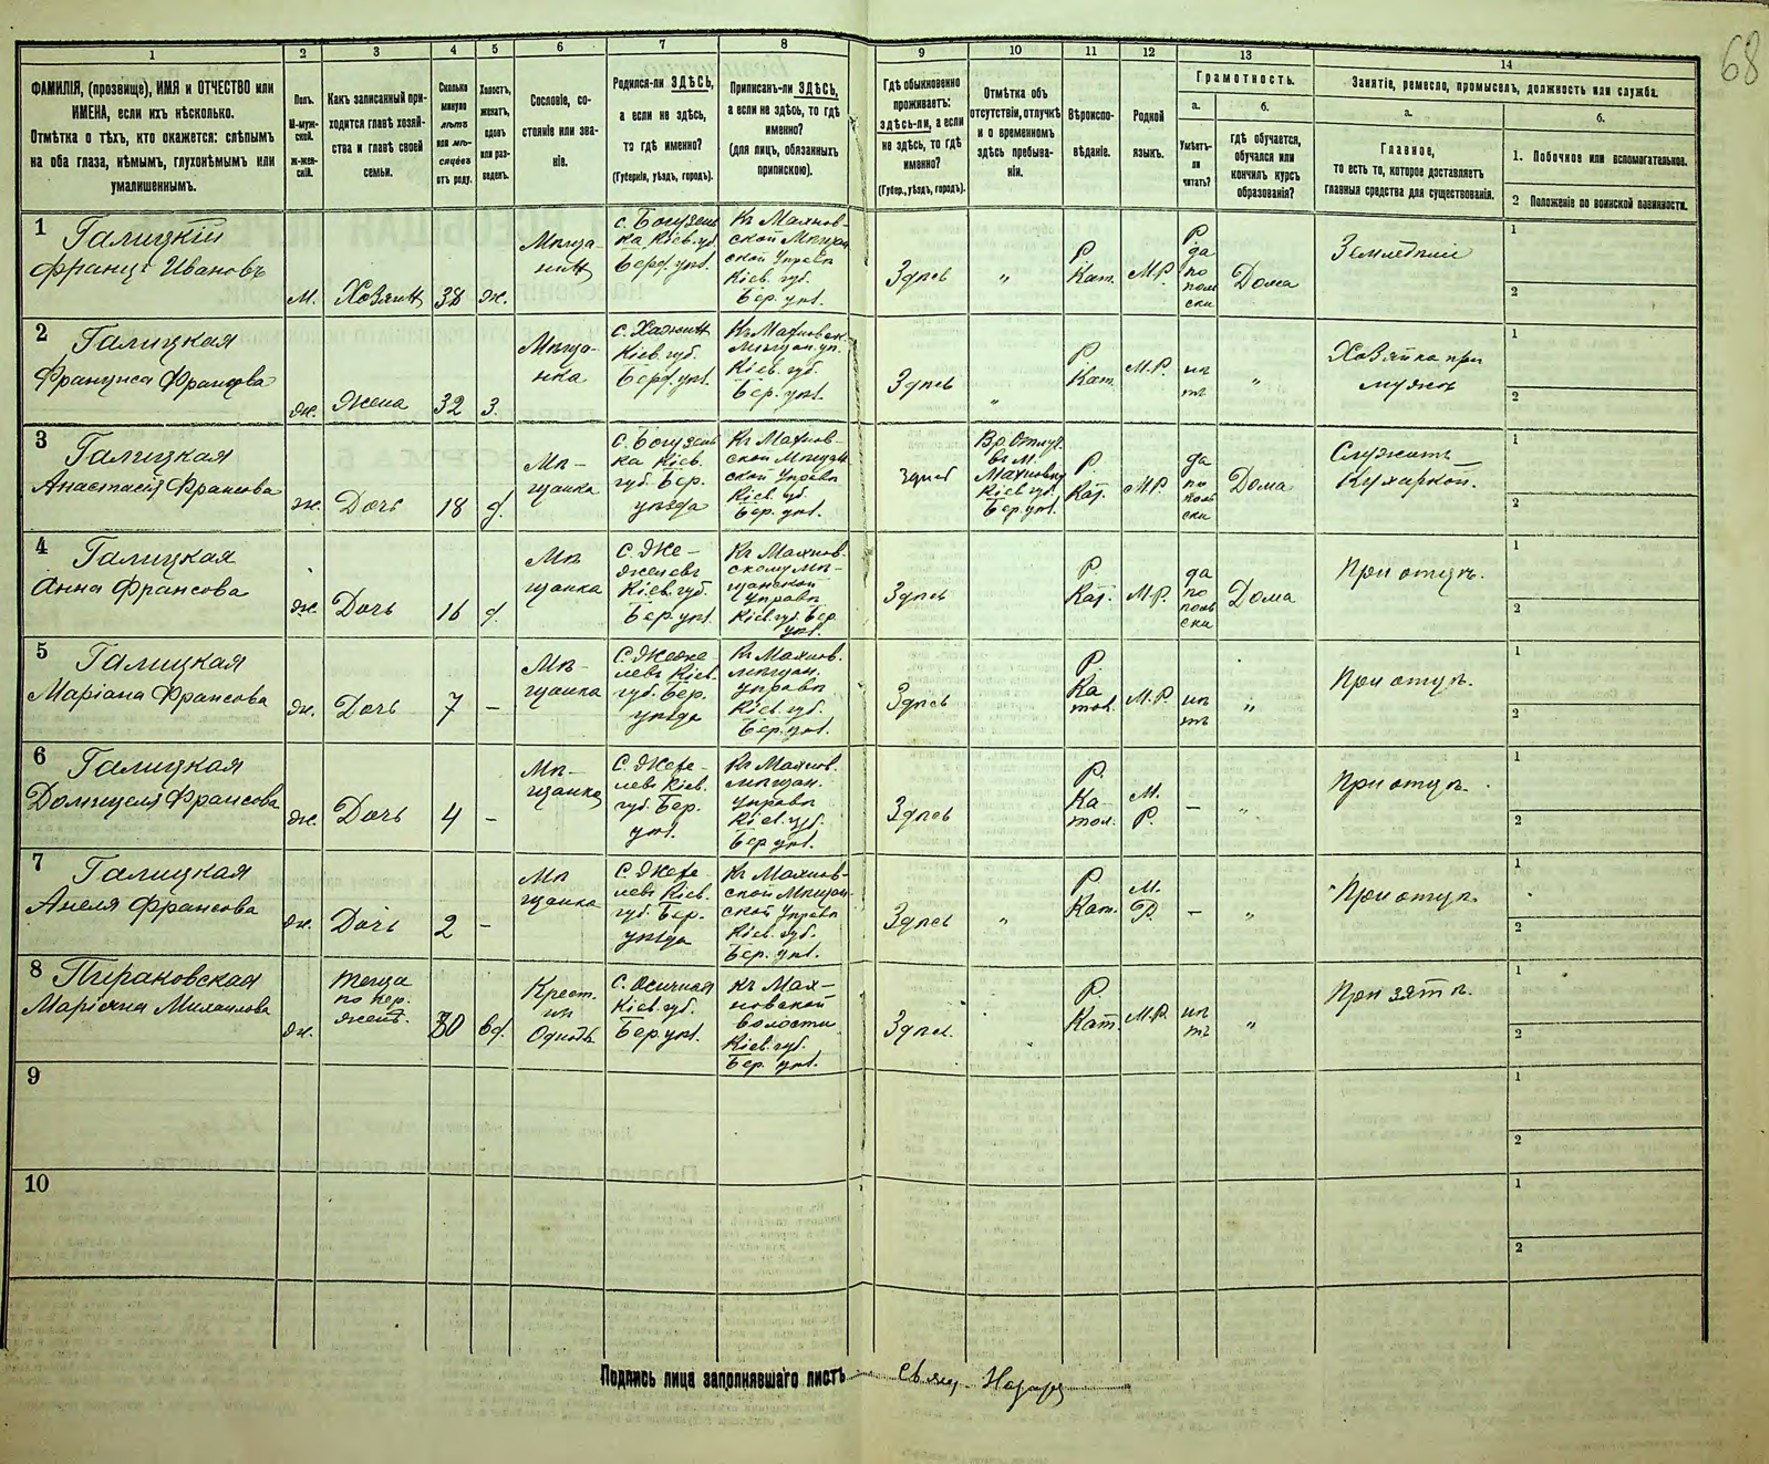 68
1
2
3
4
5
6
7
8
9
10
11
12
13
14
ФАМИЛІЯ, (прозвище), ИМЯ и ОТЧЕСТВО или
ИМЕНА, если ихъ нѣсколько.
Отмѣтка о тѣхъ, кто окажется: слѣпымъ
на оба глаза, нѣмымъ, глухонѣмымъ или
умалишеннымъ.
Полъ.
М-муж-
ской.
Ж-жен-
скій.
Какъ записанный при-
ходится главѣ хозяй-
ства и главѣ своей
семьи.
Сколько
минуло
лѣтъ
или мѣ-
сяцевъ
отъ роду.
Холостъ,
женатъ,
вдовъ
или раз-
веденъ.
Сословіе, со-
стояніе или зва-
ніе.
Родился-ли ЗДѢСЬ,
а если не здѣсь,
то гдѣ именно?
(Губернія, уѣздъ, городъ).
Приписанъ-ли ЗДѢСЬ,
а если не здѣсь, то гдѣ
именно?
(для лицъ, обязанныхъ
припискою).
Гдѣ обыкновенно
проживаетъ:
здѣсь-ли, а если
не здѣсь, то гдѣ
именно?
(Губер., уѣздъ, городъ).
Отмѣтка объ
отсутствіи, отлучкѣ
и о временномъ
здѣсь пребыва-
ніи.
Вѣроиспо-
вѣданіе.
Родной
языкъ.
Грамотность.
а.
Умѣетъ-
ли
читать?
б.
Гдѣ обучается,
обучался или
кончилъ курсъ
образованія?
Занятіе, ремесло, промыселъ, должность или служба.
а.
Главное,
то есть то, которое доставляетъ
главныя средства для существованія.
б.
1. Побочное или вспомогательное.
2 Положеніе по воинской повинности.
1 Галицкій
Францъ Ивановъ
м.
Хозяинъ
38
ж.
Мѣща
нинъ
Кіев. губ.
Берд. уѣз.
Къ Махнов-
ской Мѣщан
ской Управѣ
Кіев. губ.
Бер. уѣз.
Здѣсь
"
Р.
Кат.
М.Р.
да
по
поль
ски
Дома
Земледѣліе
1
2
2 Галицкая
Франциса Францова
ж.
Жена
32
з.
Мѣща-
нка
с. Хажинъ
Кіев. губ.
Берд. уѣз.
Къ Махновск.
мѣщан. уп.
Кіев. губ.
Бер. уѣз.
Здѣсь
"
Р.
Кат.
М.Р.
нѣ
тъ
"
Хозяйка при
мужѣ
1
2
3 Галицкая
Анастасія Францова
ж.
Дочь
18
д.
Мѣ-
щанка
Кіев.
губ. Бер.
уѣзда
Къ Махнов-
ской Мѣщан
ской Управѣ
Кіев. губ.
Бер. уѣз.
Здѣсь
Вр. Отлуч.
въ м.
Махновку
Кіев. губ.
Бер. уѣз.
Р.
Кат.
М.Р.
да
по
поль
ски
Дома
Служитъ
Кухаркой.
1
2
4 Галицкая
Анна Францова
ж.
Дочь
16
д.
Мѣ
щанка
С. Же-
желевъ
Кіев. губ.
Бер. уѣз.
Къ Махнов-
скому мѣ-
щанской
Управѣ
Кіев. губ. Бер
уѣз.
Здѣсь
Р.
Кат.
М.Р.
да
по
поль
ски
Дома
При отцѣ.
1
2
5 Галицкая
Маріана Францова
ж.
Дочь
7
-
Мѣ-
щанка
С. Жеже-
левъ Кіев.
губ. Бер.
уѣзда
Къ Махнов.
мѣщан.
управѣ
Кіев. губ.
Бер. уѣз.
Здѣсь
Р.
Ка
тол.
М.Р.
нѣ
тъ
"
При отцѣ.
1
2
6 Галицкая
Домицеля Францова
ж.
Дочь
4
-
Мѣ-
щанка
Кіев.
губ. Бер.
уѣз.
Къ Махнов.
мѣщан.
управѣ
Кіев. губ.
Бер. уѣз.
Здѣсь
Р.
Ка-
тол.
М.
Р.
-
"
При отцѣ.
1
2
7 Галицкая
Анеля Францова
ж.
Дочь
2
-
Мѣ
щанка
Кіев.
губ. Бер.
уѣзда
Къ Махнов-
ской Мѣщан-
ской Управѣ
Кіев. губ.
Бер. уѣз.
Здѣсь
"
Р.
Кат.
М.
Р.
-
"
При отцѣ.
1
2
8
Маріяна Михаилова
ж.
Теща
по пер.
женѣ.
вд.
Крест.
изъ
Однодв.
Кіев. губ.
Бер. уѣз.
Къ Мах-
новской
волости
Кіев. губ.
Бер. уѣз.
Здѣсь.
Р.
Кат.
М.Р.
нѣ
тъ
"
При зятѣ.
1
2
9
1
2
10
1
2
Подпись лица заполнявшаго листъ